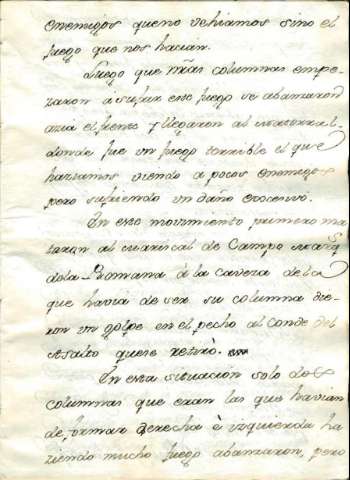 enemigos queno vehiamos sino el
fuego que nos hacian.
Luego que nrãs columnas empe-
zaron á sufrir este fuego se abanzaron
acia el frente y llegaron al matorral
donde fue un fuego terrible el que
haziamos viendo a pocos enemigos
pero sufriendo un daño excesivo.
En este movimiento primero ma-
taron al mariscal de Campo Marqs
dela Romana á la caveza dela
que havia de ser su columna die-
ron un golpe en el pecho al Conde del
Asalto quese retirò.
En esta situacion solo dos
columnas que eran las que havian
de formar derecha è izquierda ha-
ziendo mucho fuego abanzaron, pero